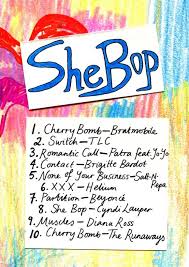 She Bop
1. Cherry Bomb – Bratmobile
2. Switch – TLC
3. Romantic Call – Patra feat. Yo-Yo
4. Contact – Brigitte Bardot
5. None of Your Business – Salt-N-
Pepa
6. XXX – Helium
7. Partition – Beyoncé
8. She Bop – Cyndi Lauper
9. Muscles – Diana Ross
10. Cherry Bomb – The Runaways